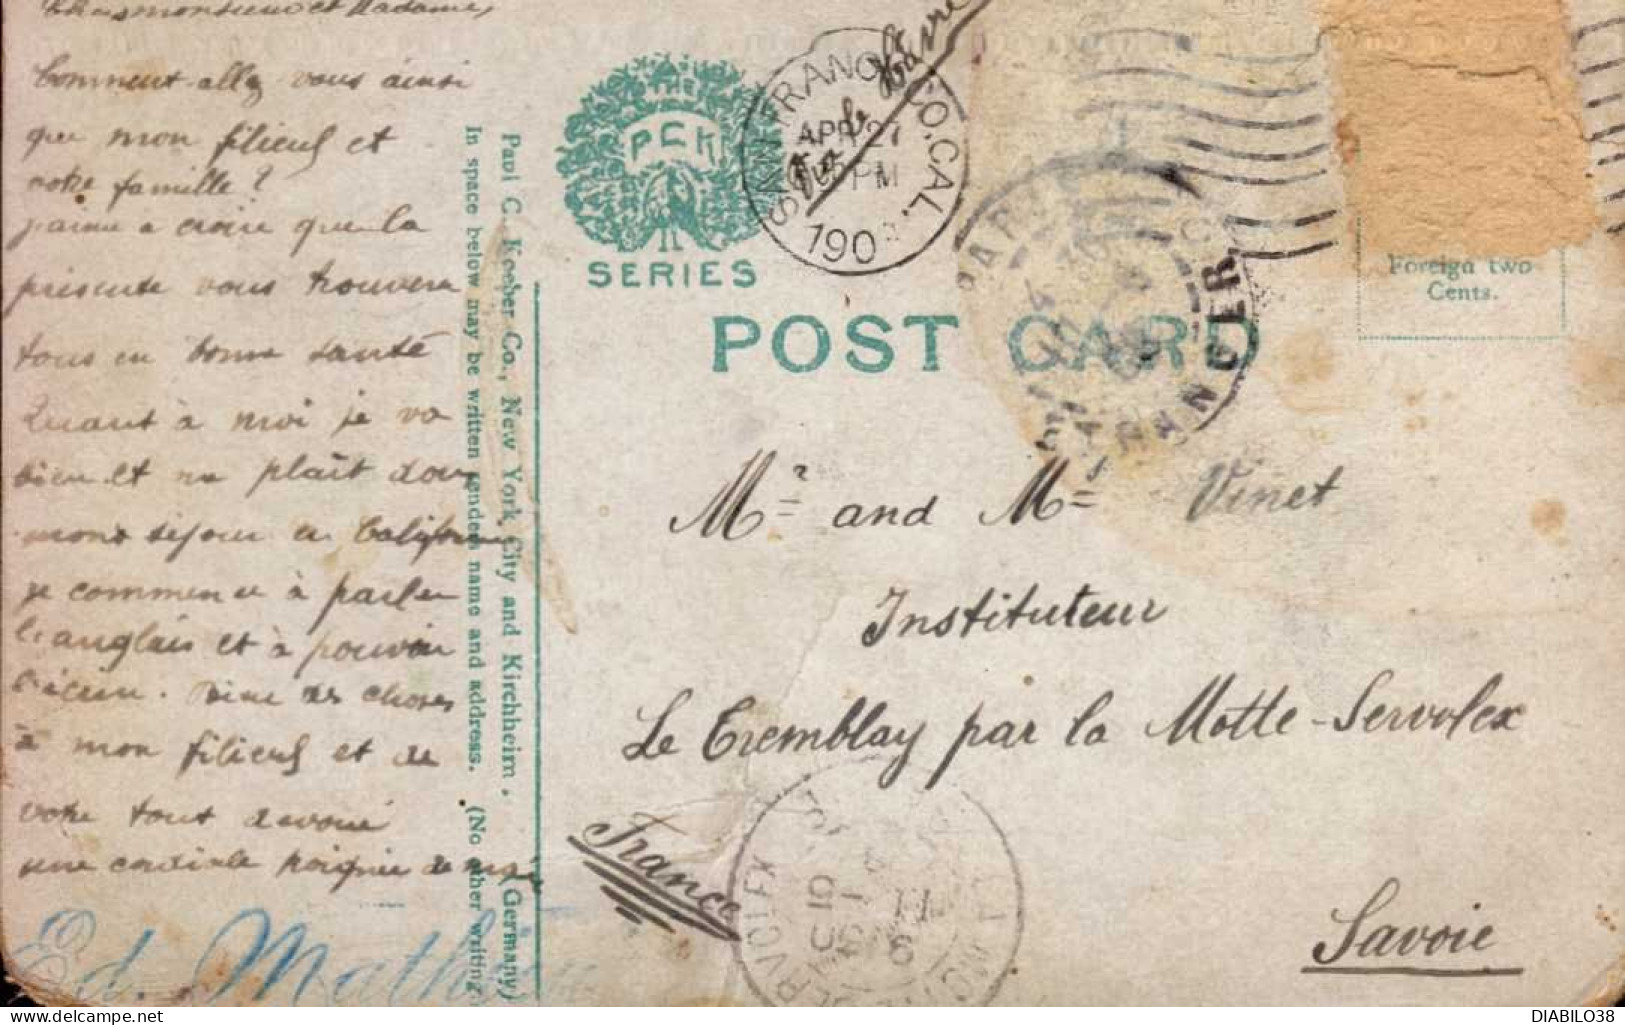 Chers monsieur et Madame,
Comment allez vous ainsi
que mon filieul et
votre famille ?
J'aime a croire que la
présente vous trouvera
tous en bonne santé
Quant à moi je va
bien et me plaît dans
mons séjour en Californie
je commence à parler
l'anglais et à pouvoir
l'écrire. Bien des choses
à mon filieul et de
votre tout devoué
une cordiale poignée de main
Ed. Mathieu
Paul C. Koeber Co., New York City and Kirchheim. (Germany)
In space below may be written senders name and address. (No other writing)
THE
PCK
SERIES
SAN FRANCISCO, CAL.
APR 27
PM
190
Via le Havre
POST CARD
PARIS
ETRANGER
Foreign two
Cents.
Mr and Ms Vinet
Instituteur
Le Tremblay par la Motte-Servolex
France
Savoie
LA MOTTE SERVOLEX
DIABILO38